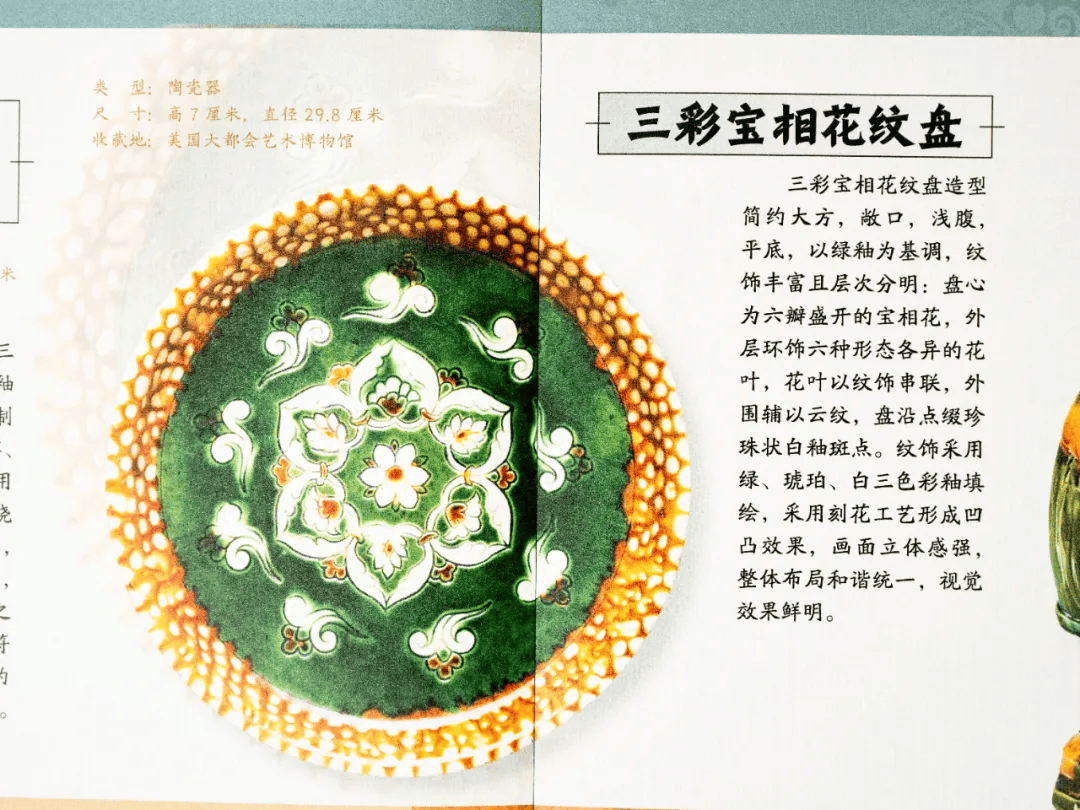 类 型：陶瓷器
尺 寸：高 7 厘米，直径 29.8 厘米
收藏地：美国大都会艺术博物馆
三彩宝相花纹盘
三彩宝相花纹盘造型
简约大方，敞口，浅腹，
平底，以绿釉为基调，纹
饰丰富且层次分明：盘心
为六瓣盛开的宝相花，外
层环饰六种形态各异的花
叶，花叶以纹饰串联，外
围辅以云纹，盘沿点缀珍
珠状白釉斑点。纹饰采用
绿、琥珀、白三色彩釉填
绘，采用刻花工艺形成凹
凸效果，画面立体感强，
整体布局和谐统一，视觉
效果鲜明。
米
三
釉
制
、
用
烧
，
，
之
符
的
。